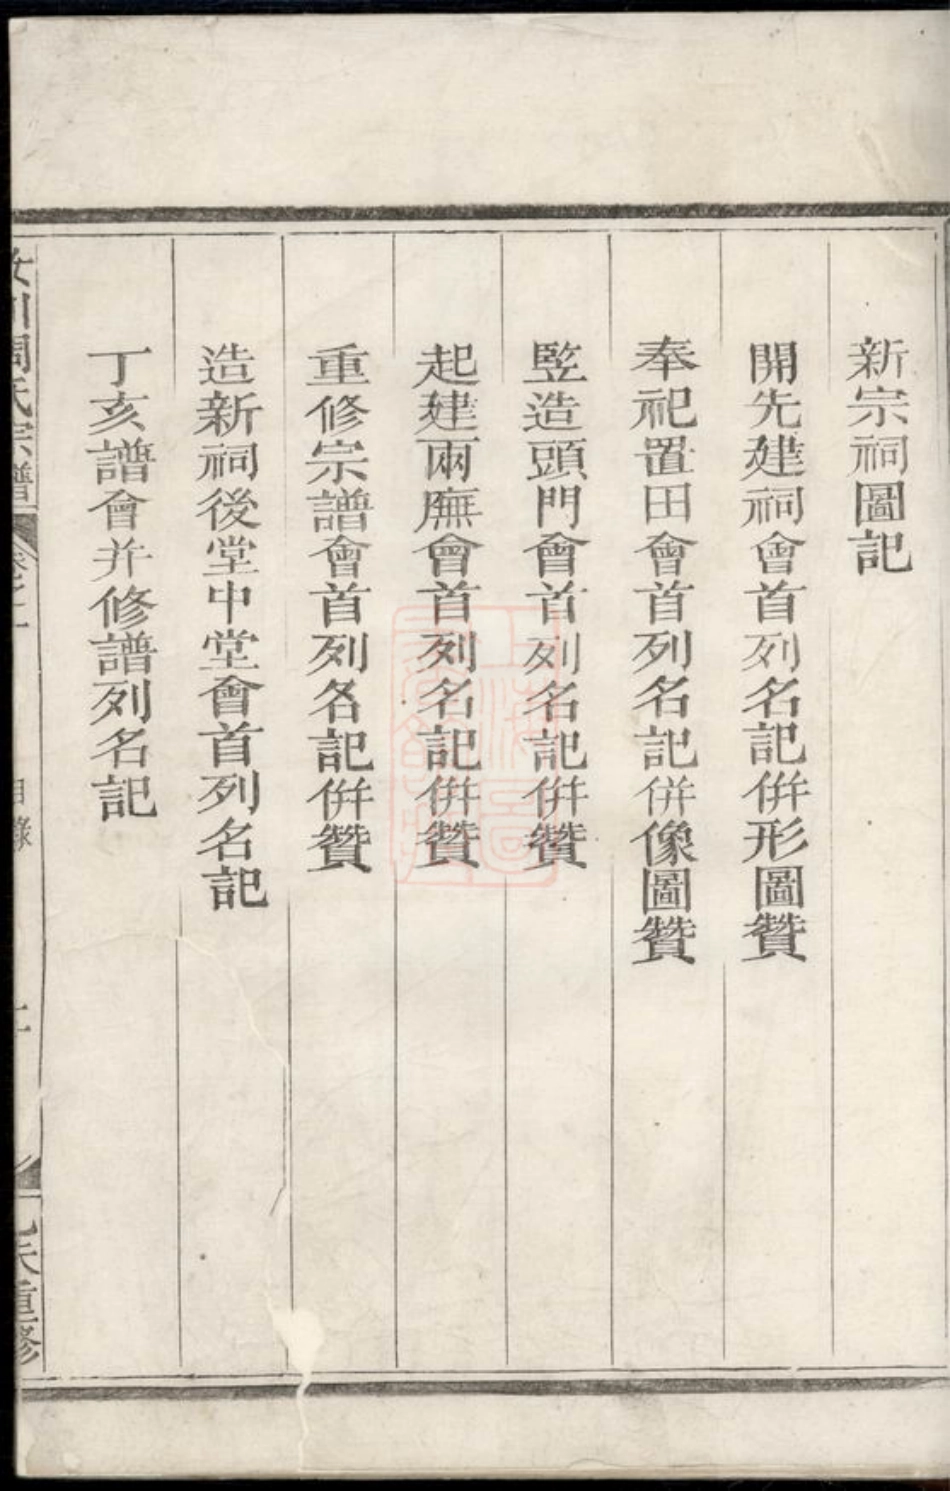 新宗祠圖記
開先建祠會首列名記併形圖贊
奉祀置田會首列名記併像圖贊
監造頭門會首列名記併贊
起建兩廡會首列名記併贊
重修宗譜會首列名記併贊
造新祠後堂中堂會首列名記
丁亥譜會并修譜列名記
川周氏宗譜
目錄
重修